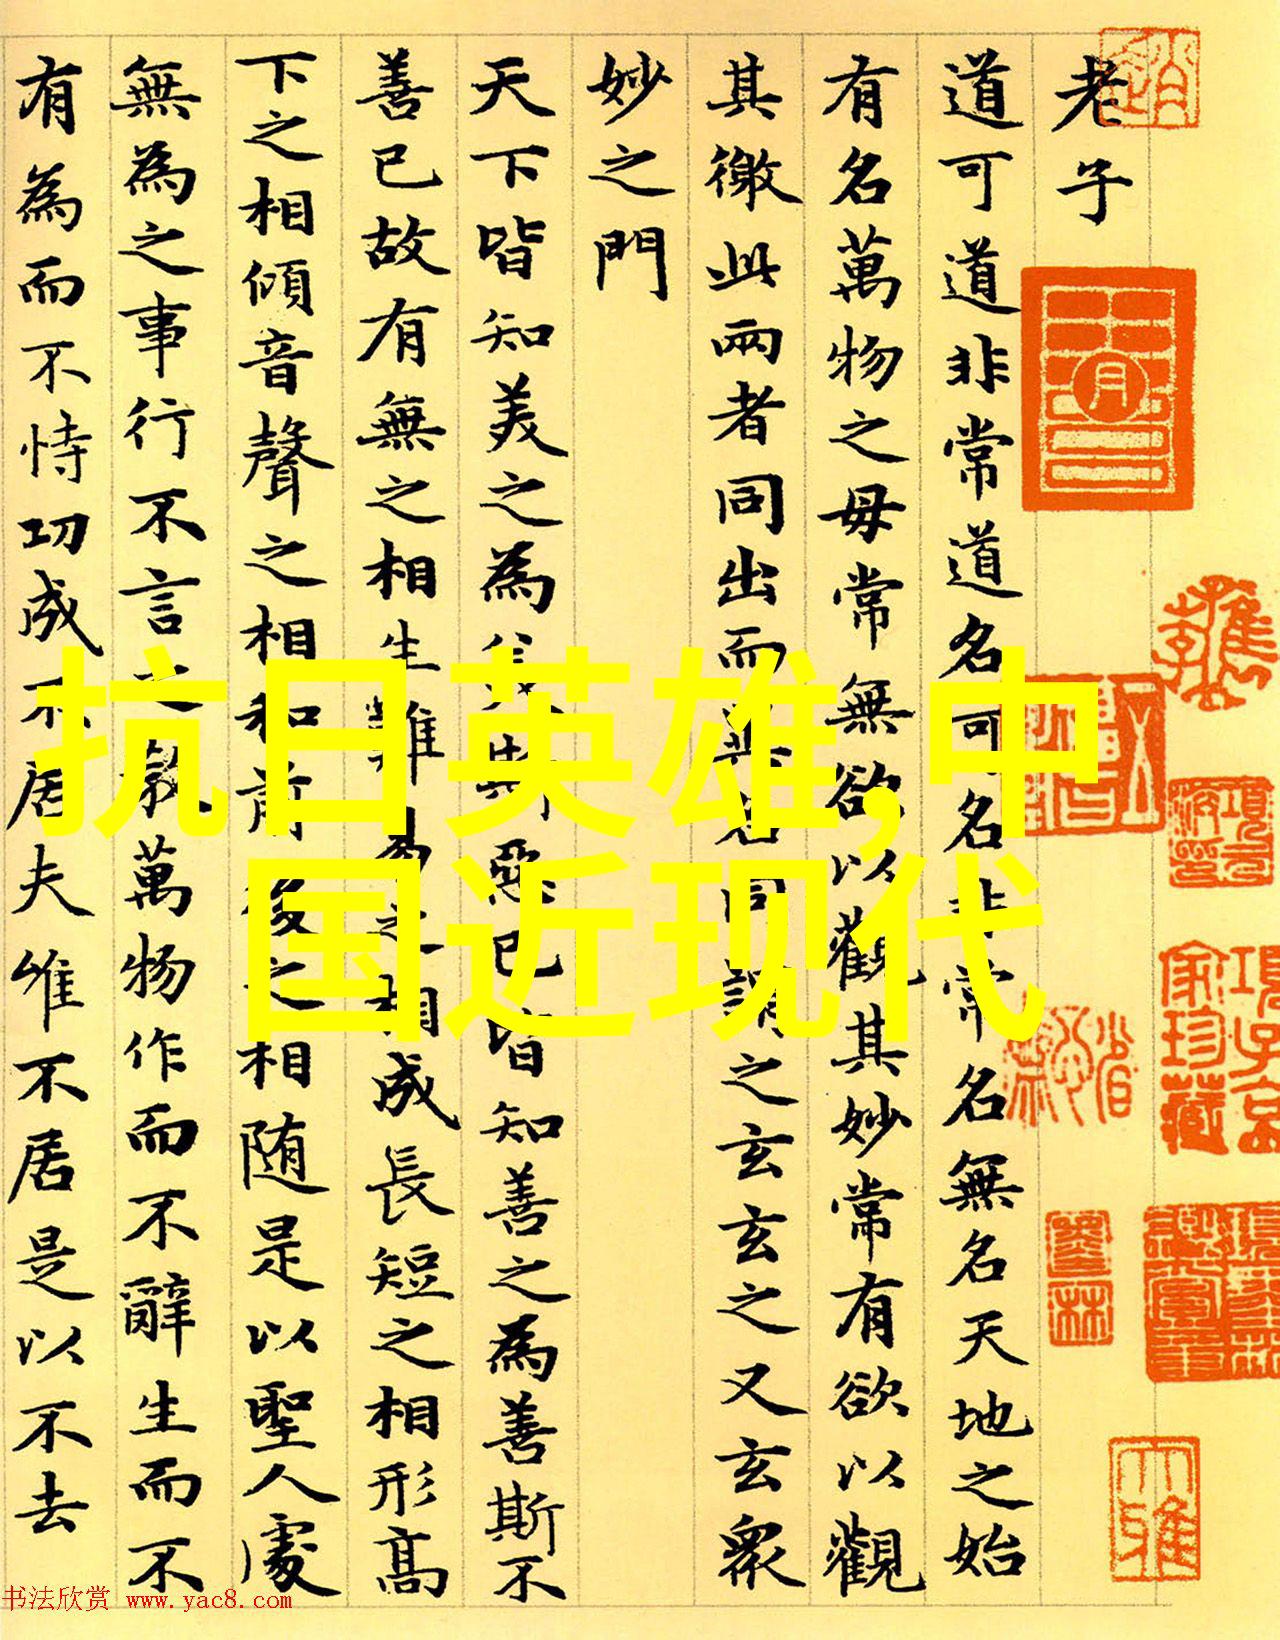 老子
道可道非常道名可名非常名無名天地之始
有名萬物之毋常無欲以觀其妙常有欲以觀
其徼此兩者同出而異名同謂之玄玄之又玄衆
妙之門
天下皆知美之為美斯惡已皆知善之為善斯不
善已故有無之相生難易之相成長短之相形高
下之相傾音聲之相和前後之相随是以聖人處
無為之事行不言之教萬物作而不辭生而不
有為而不恃功成不居夫唯不居是以不去
抗日英雄,中
国近现代
项子京家珍藏
书法欣赏 www.yac8.com